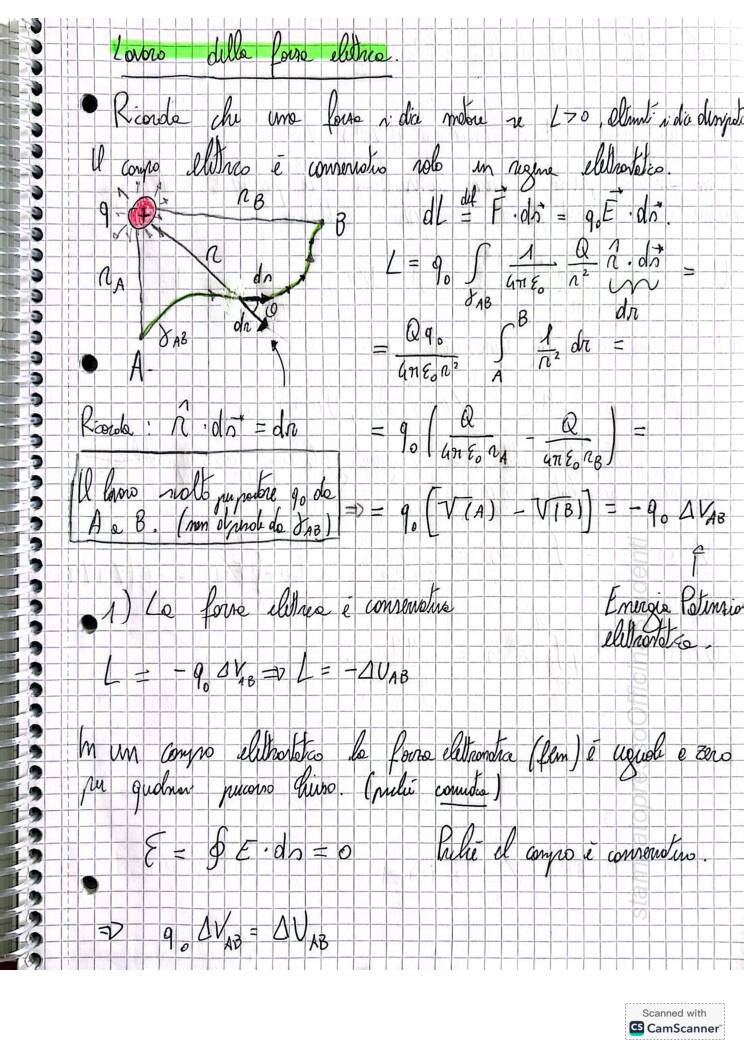 Lavoro della forza elettrica.
Ricorda che una forza si dice motore se L>0, altrimenti si dice dissipat
Il campo elettrico è conservativo solo in regime elettrostatico.
q + r_B B
r_A r ds θ dr
A γ_AB
dL =^def F⃗ · ds⃗ = q₀E⃗ · ds⃗.
L = q₀ ∫_γAB 1/(4πε₀) Q/r² r̂ · ds⃗ =
dr
= Qq₀/(4πε₀r²) ∫_A^B 1/r² dr =
Ricorda : r̂ · ds⃗ = dr
= q₀ ( Q/(4πε₀r_A) - Q/(4πε₀r_B) ) =
Il lavoro svolto per portare q₀ da
A a B. (non dipende da γ_AB)
⇒ = q₀ [V(A) - V(B)] = -q₀ ΔV_AB
↑
1) La forza elettrica è conservativa
Energia Potenzia
elettrostatica.
L = -q₀ ΔV_AB ⇒ L = -ΔU_AB
In un campo elettrostatico la forza elettromotrice (fem) è uguale a zero
per qualsiasi percorso chiuso. (perché
ℰ = ∮ E · ds = 0 Perché il campo è conservativo.
⇒ q₀ ΔV_AB = ΔU_AB
Scanned with
CS CamScanner